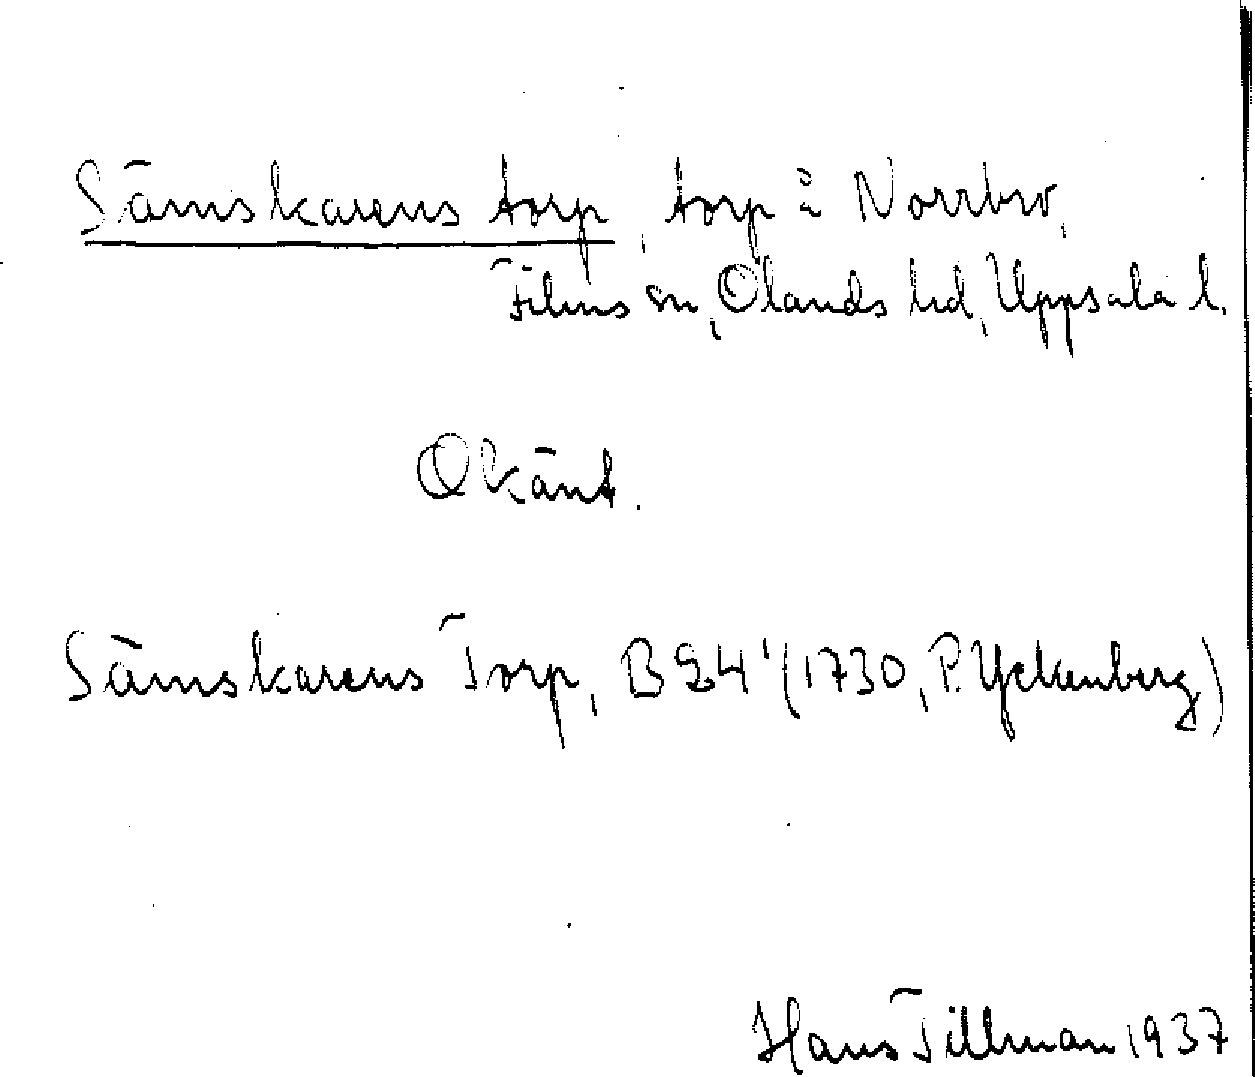 Sämskarens torp, torp å Norrbro,
Films sn, Olands hd, Uppsala l.
Okänt.
Sämskarens Torp, B24 (1730, P. Yckenberg)
Hans Tillman 1937